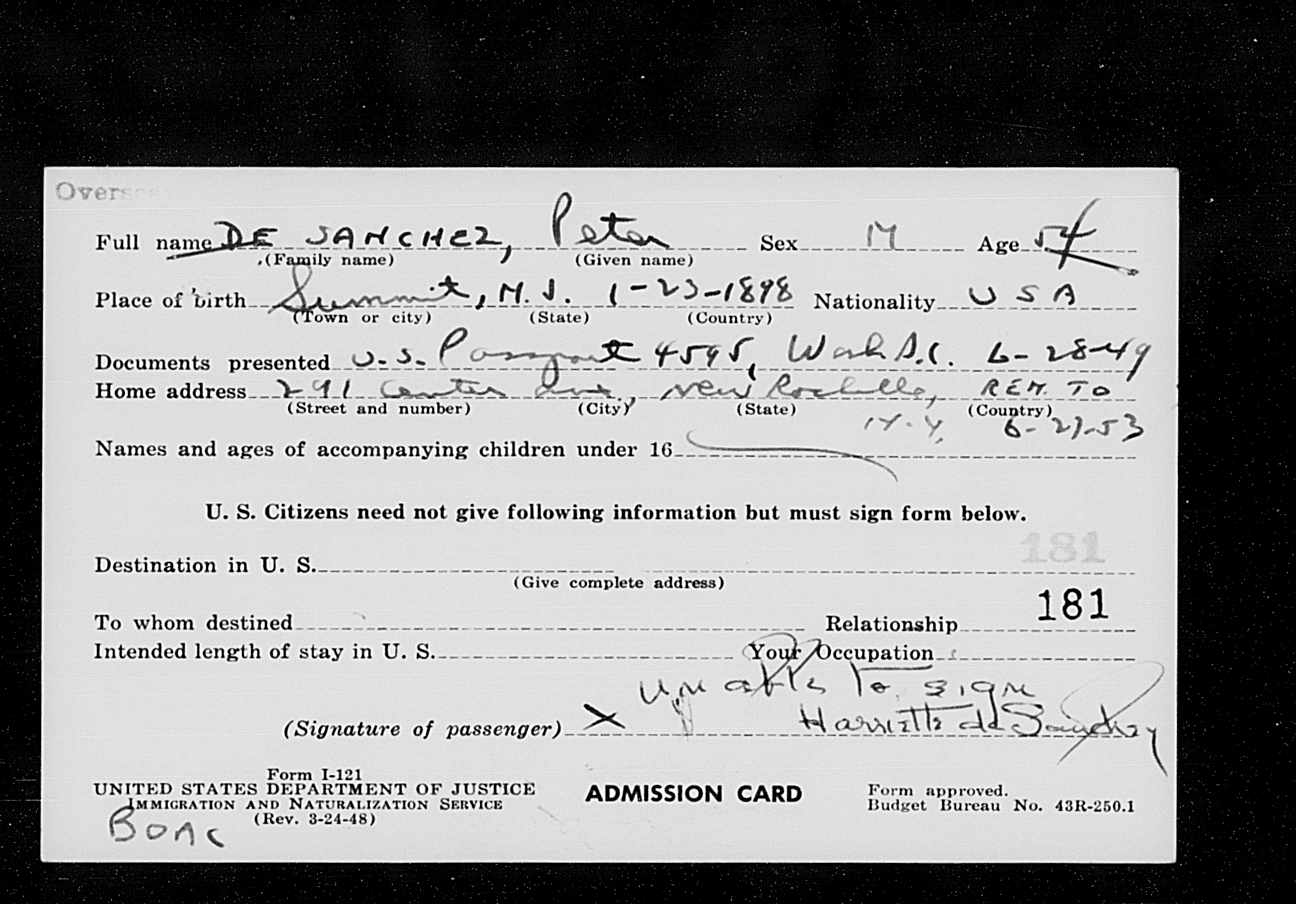 Overs
Full name DE SANCHEZ, Peter Sex M Age 54
(Family name) (Given name)
Place of birth Summit, N.J. 1-23-1898 Nationality USA
(Town or city) (State) (Country)
Documents presented U.S. Passport 4595, Wash D.C. 6-28-49
Home address 291 Center Ave., New Rochelle, REN. TO
(Street and number) (City) (State) (Country)
N.Y. 6-27-53
Names and ages of accompanying children under 16
U. S. Citizens need not give following information but must sign form below.
181
Destination in U. S.
(Give complete address)
181
To whom destined Relationship
Intended length of stay in U. S. Your Occupation
unable to sign
(Signature of passenger) X Harriette de Sanchez
Form I-121
UNITED STATES DEPARTMENT OF JUSTICE ADMISSION CARD Form approved.
IMMIGRATION AND NATURALIZATION SERVICE Budget Bureau No. 43R-250.1
(Rev. 3-24-48)
BOAC